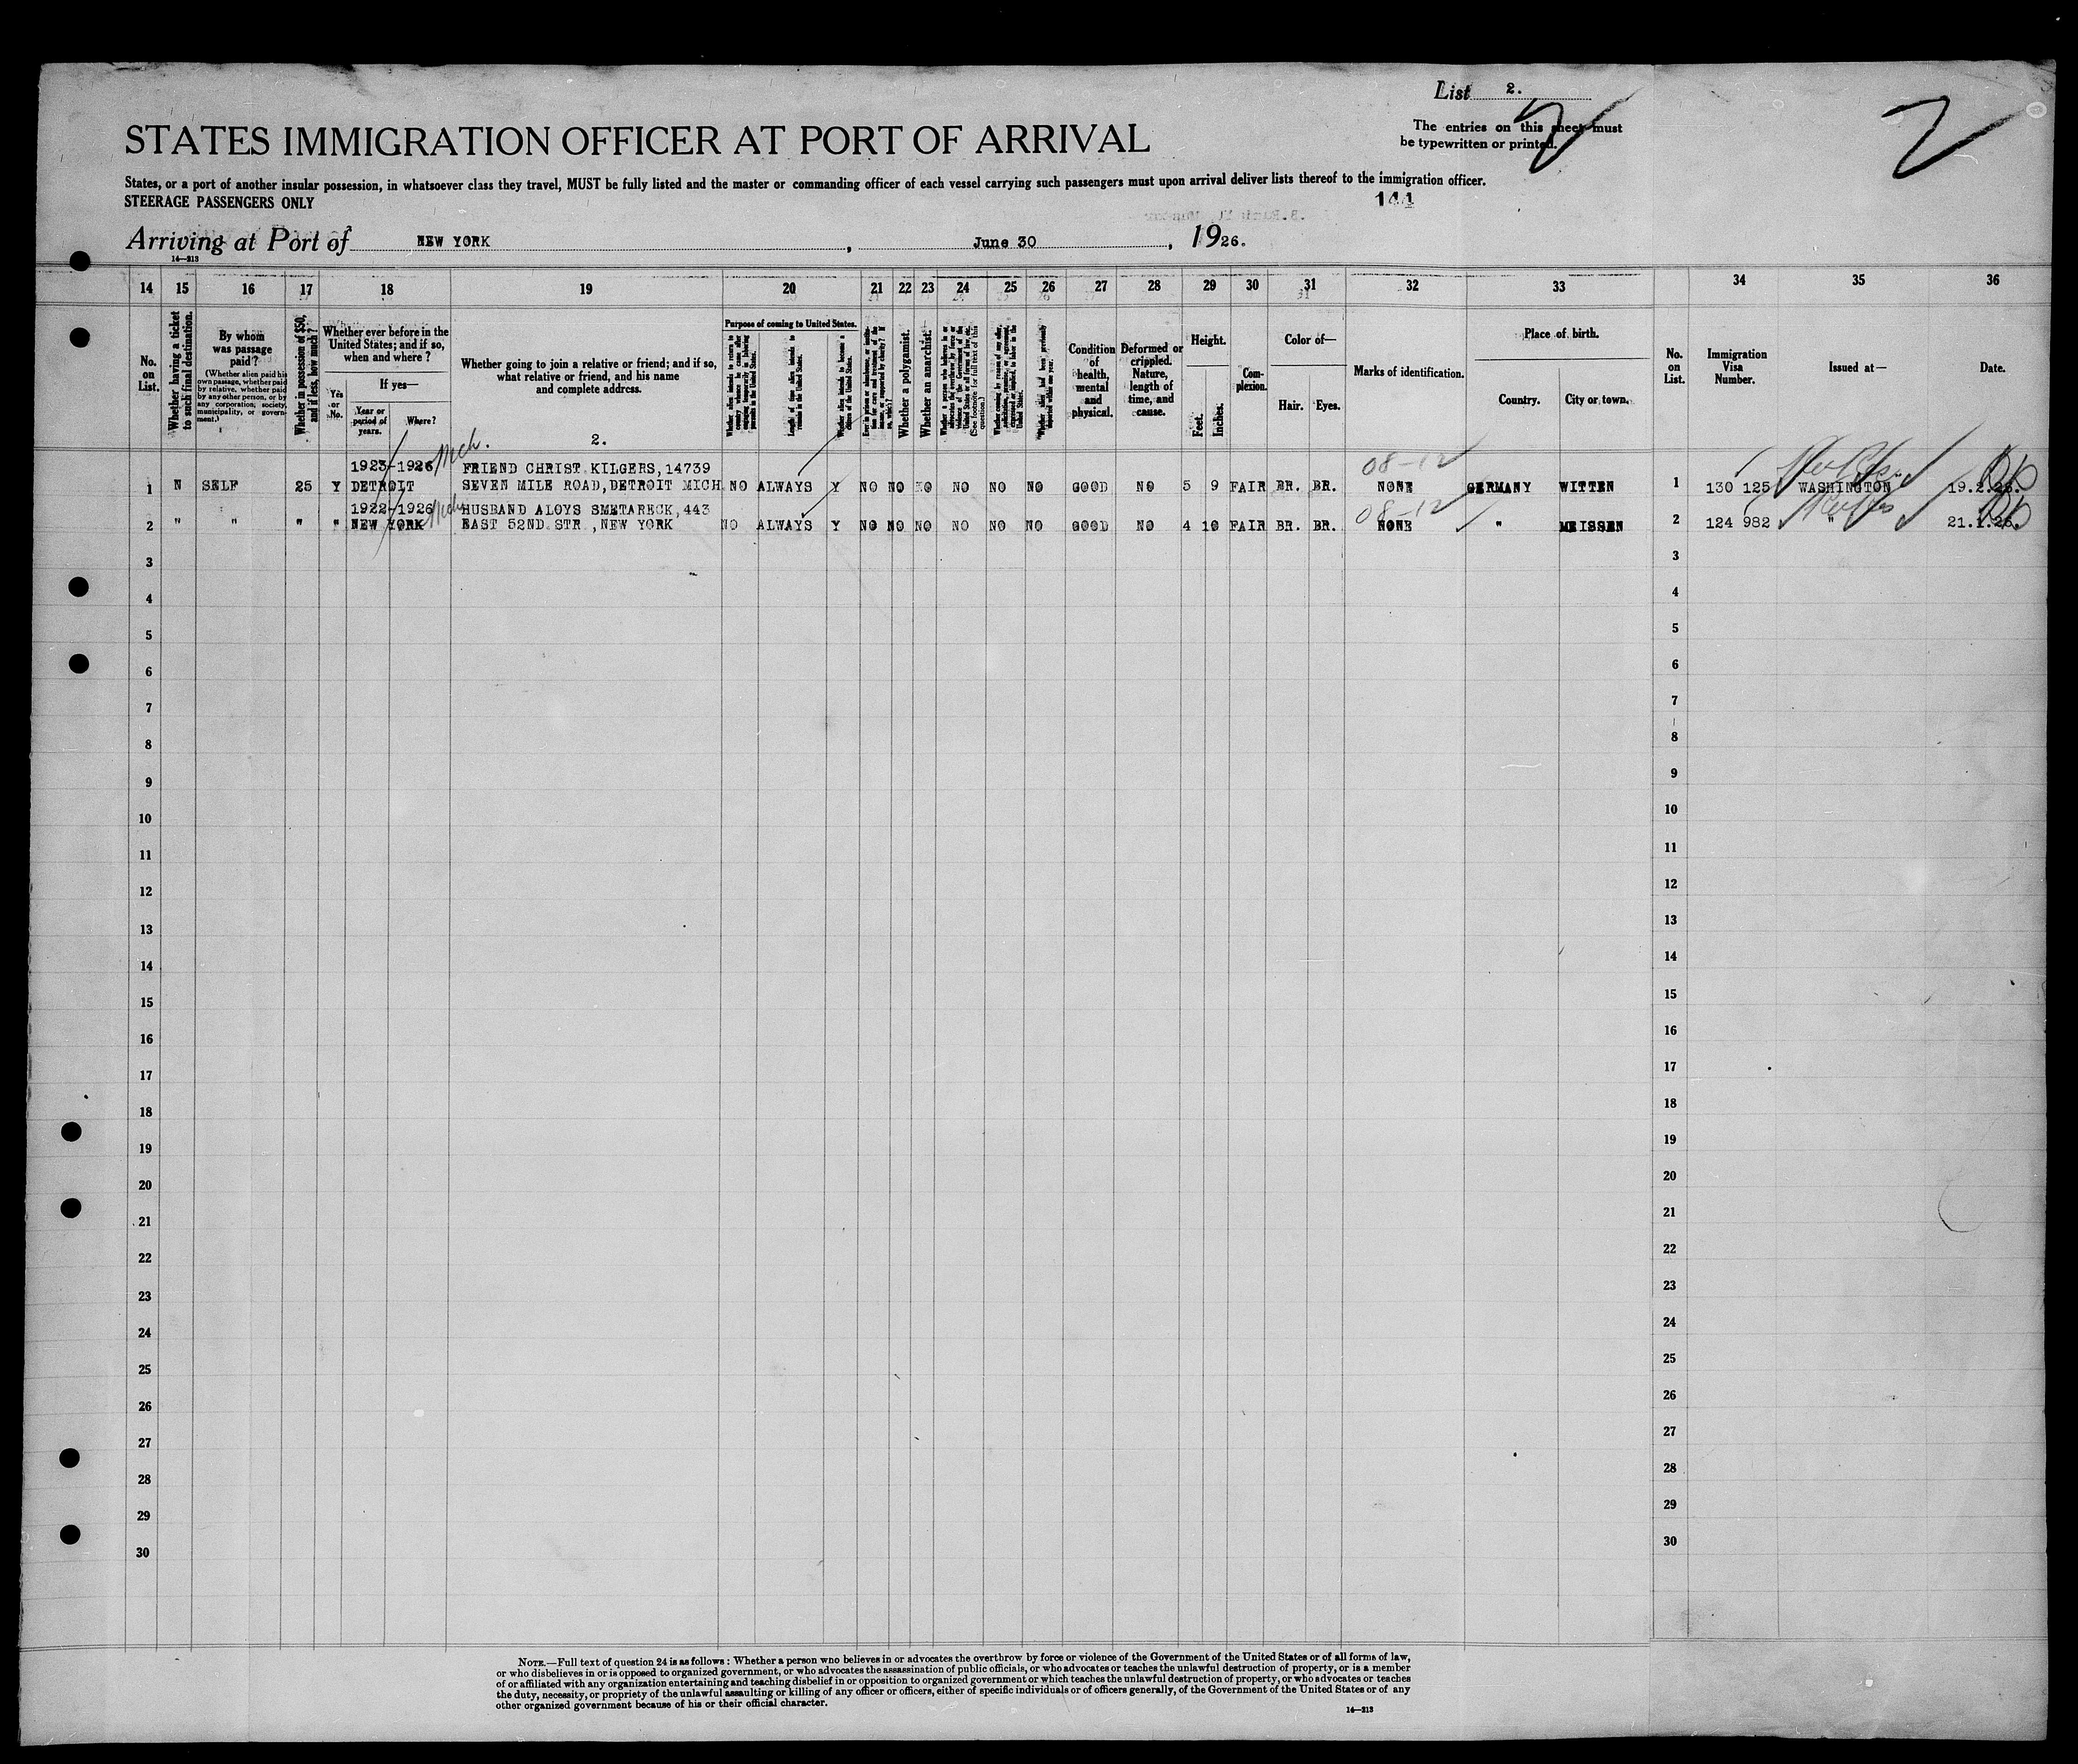 List 2.
2
2
STATES IMMIGRATION OFFICER AT PORT OF ARRIVAL
The entries on this sheet must
be typewritten or printed.
States, or a port of another insular possession, in whatsoever class they travel, MUST be fully listed and the master or commanding officer of each vessel carrying such passengers must upon arrival deliver lists thereof to the immigration officer.
STEERAGE PASSENGERS ONLY
144
Arriving at Port of NEW YORK, June 30, 1926.
14—213
14 15 16 17 18 19 20 21 22 23 24 25 26 27 28 29 30 31 32 33 34 35 36
No. on List.
Whether having a ticket to such final destination.
By whom was passage paid?
(Whether alien paid his own passage, whether paid by relative, whether paid by any other person, or by any corporation, society, municipality, or government.)
Whether in possession of $50, and if less, how much?
Whether ever before in the United States; and if so, when and where?
Yes or No.
If yes—
Year or period of years.
Where?
Whether going to join a relative or friend; and if so, what relative or friend, and his name and complete address.
2.
Purpose of coming to United States.
Length of time alien intends to remain in the United States.
Whether alien intends to become a citizen of the United States.
Whether a polygamist.
Whether an anarchist.
(See footnote for full text of this question.)
Condition of health, mental and physical.
Deformed or crippled. Nature, length of time, and cause.
Height.
Feet.
Inches.
Complexion.
Color of—
Hair.
Eyes.
Marks of identification.
Place of birth.
Country.
City or town.
No. on List.
Immigration Visa Number.
Issued at—
Date.
Mich.
1923-1926 FRIEND CHRIST KILGERS, 14739 08-12
1 N SELF 25 Y DETROIT SEVEN MILE ROAD, DETROIT MICH NO ALWAYS Y NO NO NO NO NO NO GOOD NO 5 9 FAIR BR. BR. NONE GERMANY WITTEN 1 130 125 WASHINGTON 19.2.26.
1922-1926 HUSBAND ALOYS SMETARECK, 443 08-12
2 " " " " NEW YORK EAST 52ND STR., NEW YORK NO ALWAYS Y NO NO NO NO NO NO GOOD NO 4 10 FAIR BR. BR. NONE " MEISSEN 2 124 982 " 21.1.26.
3 3
4 4
5 5
6 6
7 7
8 8
9 9
10 10
11 11
12 12
13 13
14 14
15 15
16 16
17 17
18 18
19 19
20 20
21 21
22 22
23 23
24 24
25 25
26 26
27 27
28 28
29 29
30 30
NOTE.—Full text of question 24 is as follows: Whether a person who believes in or advocates the overthrow by force or violence of the Government of the United States or of all forms of law,
or who disbelieves in or is opposed to organized government, or who advocates the assassination of public officials, or who advocates or teaches the unlawful destruction of property, or is a member
of or affiliated with any organization entertaining and teaching disbelief in or opposition to organized government or which teaches the unlawful destruction of property, or who advocates or teaches
the duty, necessity, or propriety of the unlawful assaulting or killing of any officer or officers, either of specific individuals or of officers generally, of the Government of the United States or of any
other organized government because of his or their official character.
14—213